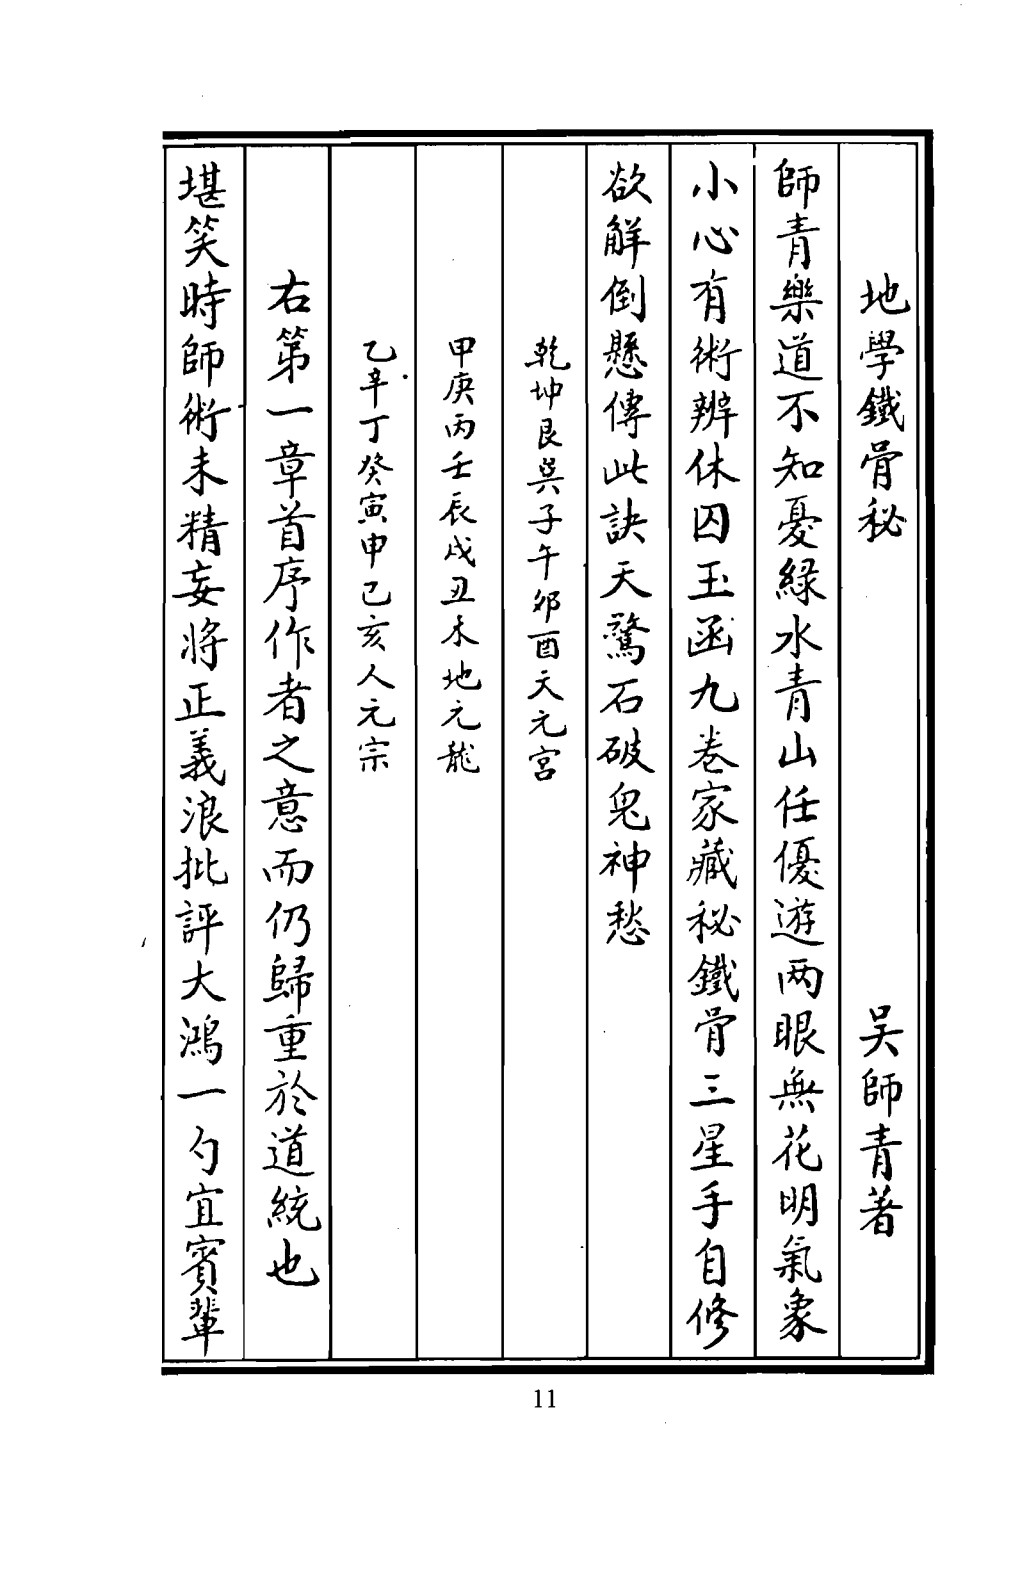 地學鐵骨秘 吴師青著
師青樂道不知憂綠水青山任優遊两眼無花明氣象
小心有術辨休囚玉函九卷家藏秘鐵骨三星手自修
欲解倒懸傳此訣天驚石破鬼神愁
乾坤艮巽子午卯酉天元宫
甲庚丙壬辰戌丑未地元龍
乙辛丁癸寅申巳亥人元宗
右第一章首序作者之意而仍歸重於道統也
堪笑時師術未精妄將正義浪批評大鴻一勺宜賓輩
11